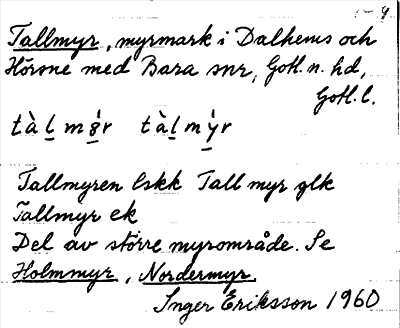 1–4
Tallmyr, myrmark i Dalhems och
Hörsne med Bara snr, Gotl. n. hd,
Gotl. l.
Tallmyren lskk Tallmyr glk
Tallmyr ek
Del av större myrområde. Se
Holmmyr, Nordermyr.
Inger Eriksson 1960